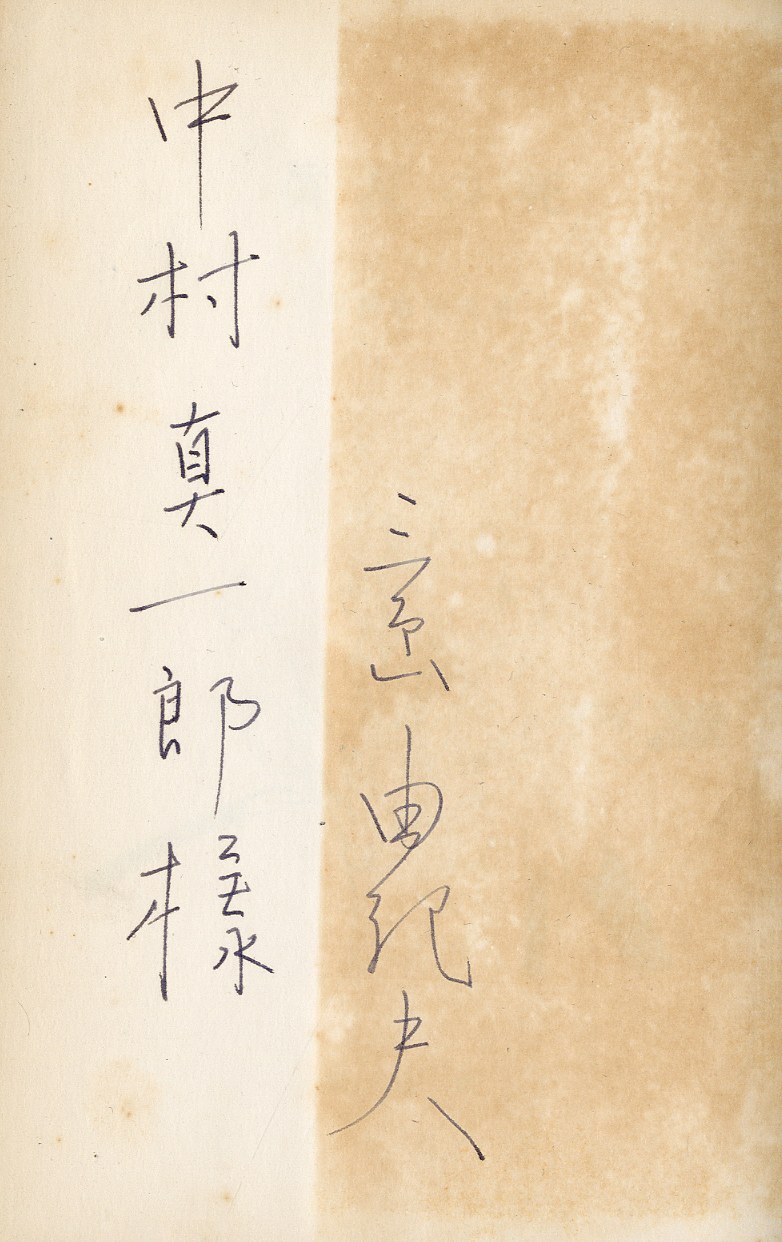 三島由紀夫
中村真一郎様